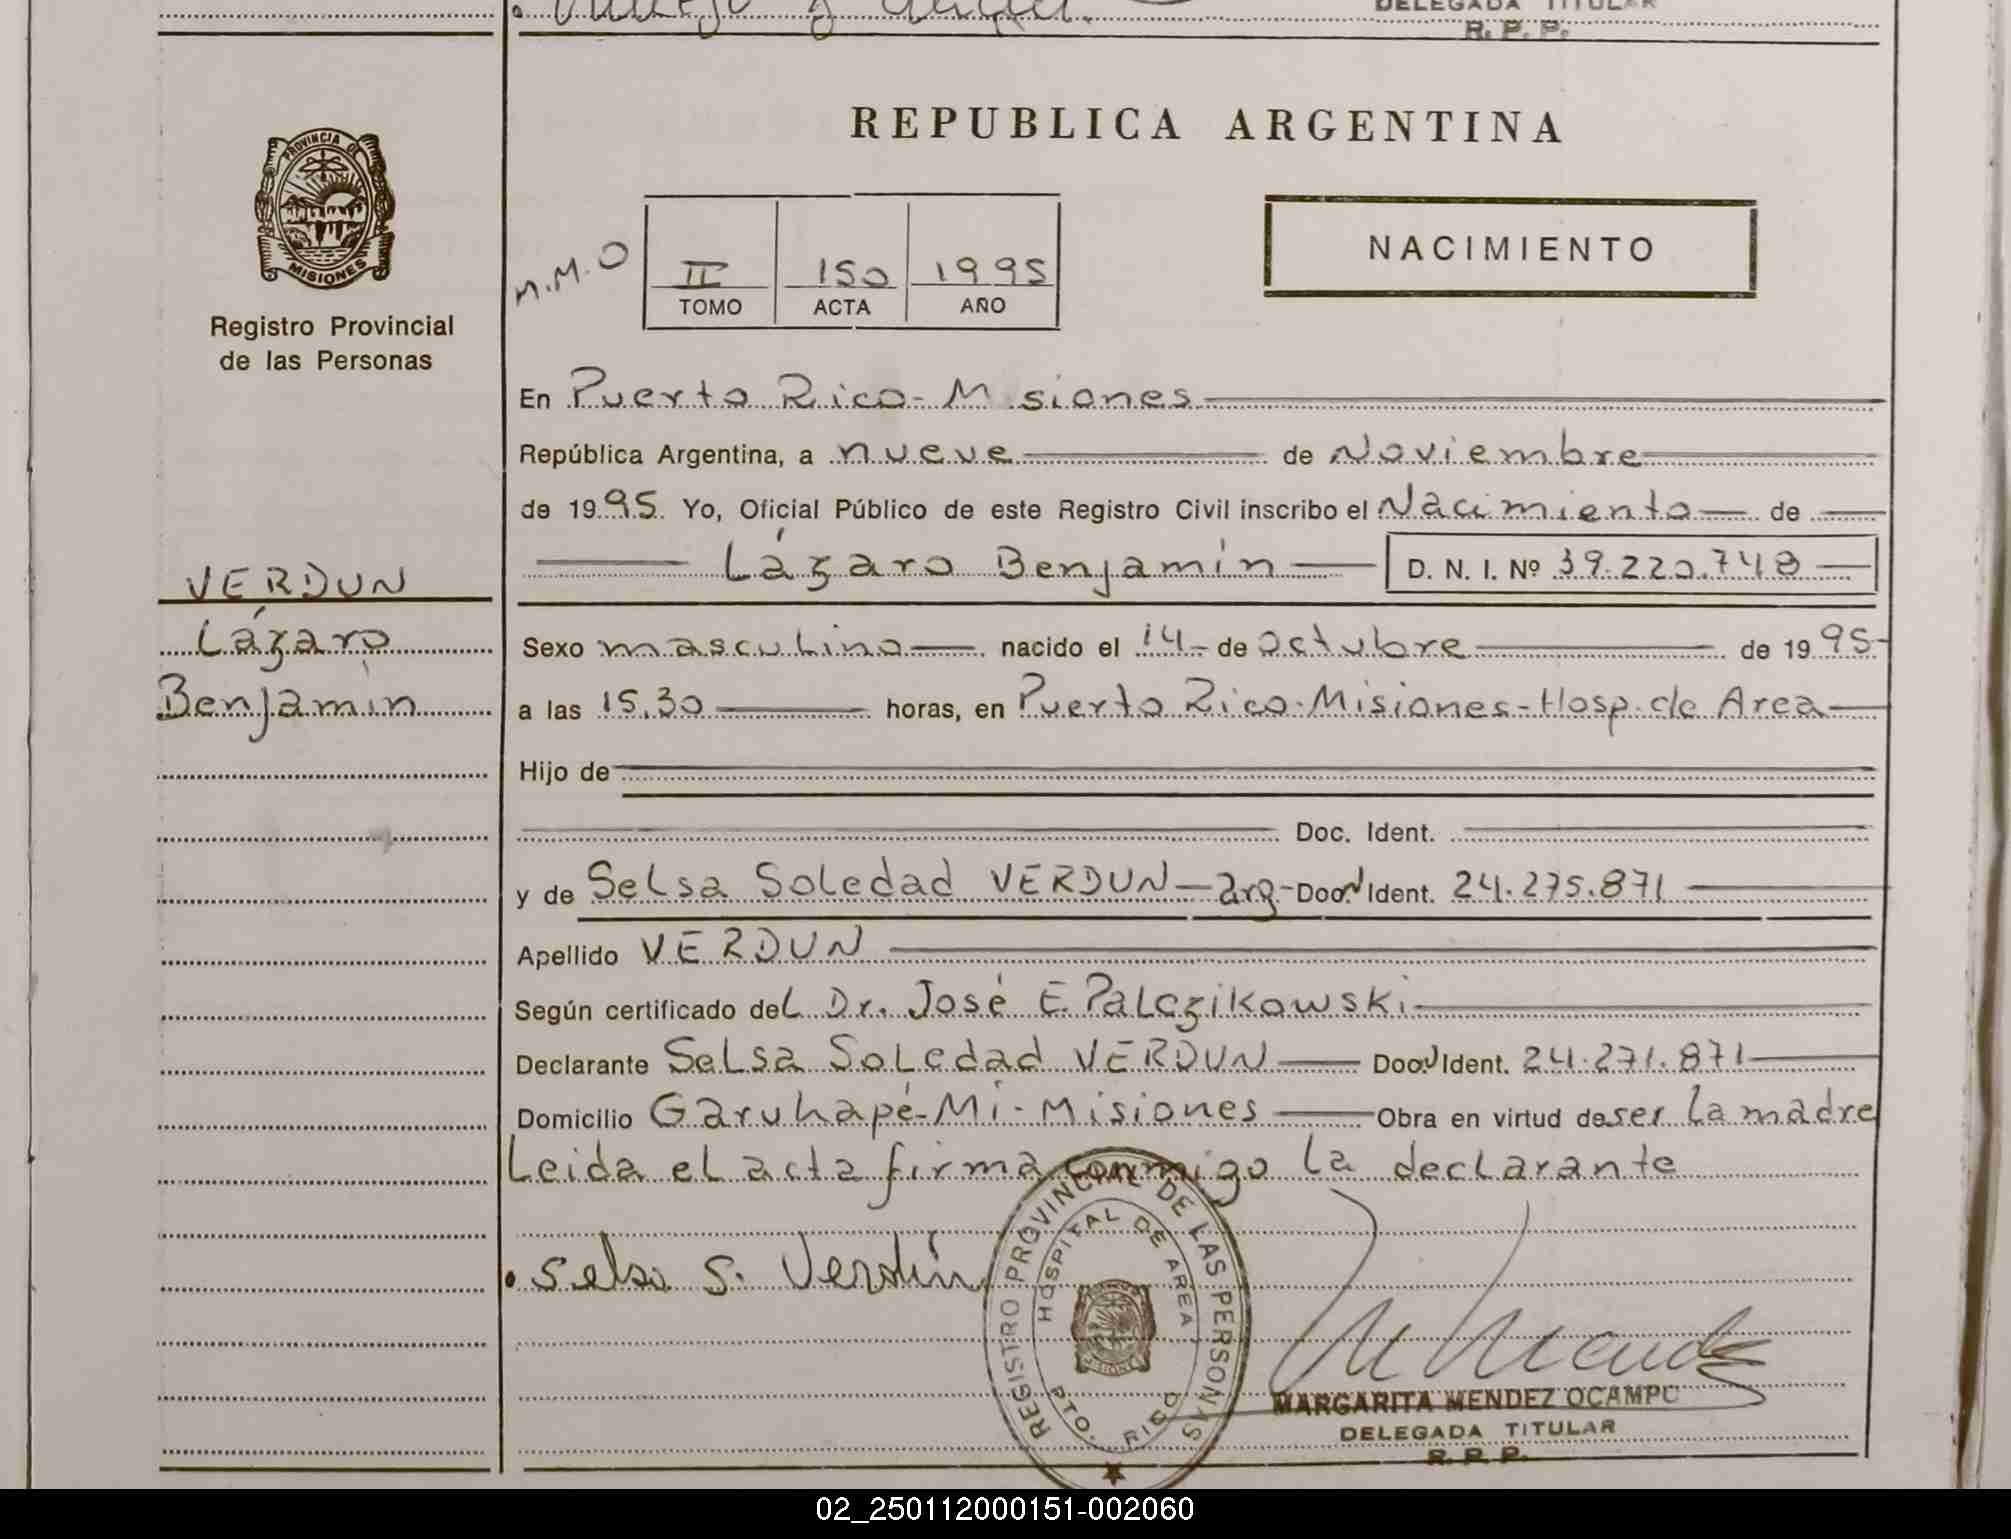 DELEGADA TITULAR
R. P. P.
PROVINCIA DE
MISIONES
Registro Provincial
de las Personas
REPUBLICA ARGENTINA
M.M.O
II 150 1995
TOMO ACTA AÑO
NACIMIENTO
En Puerto Rico - Misiones
República Argentina, a nueve de Noviembre
de 1995. Yo, Oficial Público de este Registro Civil inscribo el Nacimiento de
Lázaro Benjamín D. N. I. Nº 39.220.748
VERDUN
Lázaro
Benjamín
Sexo masculino nacido el 14 de octubre de 1995
a las 15,30 horas, en Puerto Rico - Misiones - Hosp. de Area
Hijo de
Doc. Ident.
y de Selsa Soledad VERDUN - arg - Doc. N Ident. 24.275.871
Apellido VERDUN
Según certificado del Dr. José E. Palczikowski
Declarante Selsa Soledad VERDUN Doc. N Ident. 24.271.871
Domicilio Garuhapé-Mi - Misiones Obra en virtud de ser la madre
Leida el acta firma conmigo la declarante
Selsa S. Verdún
REGISTRO PROVINCIAL DE LAS PERSONAS
HOSPITAL DE AREA
PTO. RICO
MISIONES
MARGARITA MENDEZ OCAMPO
DELEGADA TITULAR
R. P. P.
02_250112000151-002060